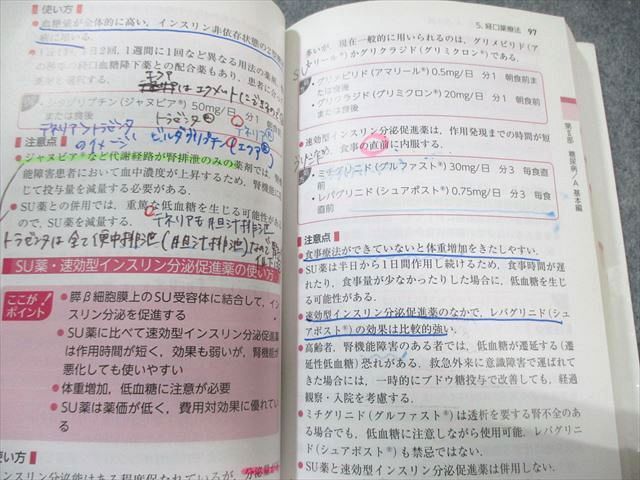 使い方
血糖量が全体的に高い，インスリン非依存状態の2型糖
に用いる．
1日1回，2回，1週間に1回など異なる用法の薬剤，
の経口血糖降下薬との配合薬もあり，患者に合
エクア
・シタグリプチン(ジャヌビア®)50mg/日 分1 朝食
または食後
トラゼンタ
テネリア
テネリアントラゼンタ
のイメージ
ビルダグリプチン(エクア®)
注意点
ジャヌビア®など代謝経路が腎排泄のみの薬剤では，腎
能障害患者において血中濃度が上昇するため，腎機能に
じて投与量を減量する必要がある．
SU薬との併用では，重篤な低血糖を生じる可能性があ
ので，SU薬を減量する．
テネリアも胆汁排泄
トラゼンタは全て便中排泄(胆汁排泄)なので
SU薬・速効型インスリン分泌促進薬の使い方
ここが!
ポイント
●膵β細胞膜上のSU受容体に結合して，イン
スリン分泌を促進する
●SU薬に比べて速効型インスリン分泌促進薬
は作用時間が短く，効果も弱いが，腎機能が
悪化しても使いやすい
●体重増加，低血糖に注意が必要
●SU薬は薬価が低く，費用対効果に優れてい
る
使い方
インスリン分泌能はある程度保たれているが，分泌量が
5．経口薬療法 97
多いが，現在一般的に用いられるのは，グリメピリド(ア
マリール®)かグリクラジド(グリミクロン®)である．
SU
・グリメピリド(アマリール®)0.5mg/日 分1 朝食前ま
たは食後
・グリクラジド(グリミクロン®)20mg/日 分1 朝食前
または食後
●速効型インスリン分泌促進薬は，作用発現までの時間が短
く，食事の直前に内服する．
グリニド
・ミチグリニド(グルファスト®)30mg/日 分3 毎食直
前
・レパグリニド(シュアポスト®)0.75mg/日 分3 毎食
直前
注意点
●食事療法ができていないと体重増加をきたしやすい．
●SU薬は半日から1日間作用し続けるため，食事時間が遅
れたり，食事量が少なかったりした場合に，低血糖を生じ
る可能性がある．
●速効型インスリン分泌促進薬のなかで，レパグリニド(シュ
アポスト®)の効果は比較的強い．
●高齢者，腎機能障害のある者では，低血糖が遷延する(遷
延性低血糖)恐れがある．救急外来に意識障害で運ばれ
てきた場合には，一時的にブドウ糖投与で改善しても，経過
観察・入院を考慮する．
●ミチグリニド(グルファスト®)は透析を要する腎不全のあ
る場合でも，低血糖に注意しながら使用可能．レパグリニ
ド(シュアポスト®)も禁忌ではない．
●SU薬と速効型インスリン分泌促進薬は併用しない．
第Ⅱ部 糖尿病／A 基本編